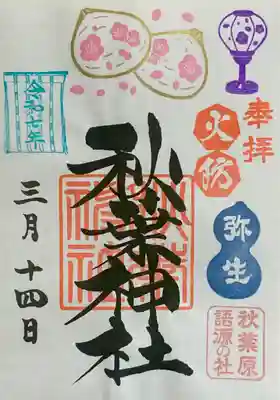 奉拝
火防
弥生
秋葉原
語源の社
秋葉神社
令和七年
三月十四日